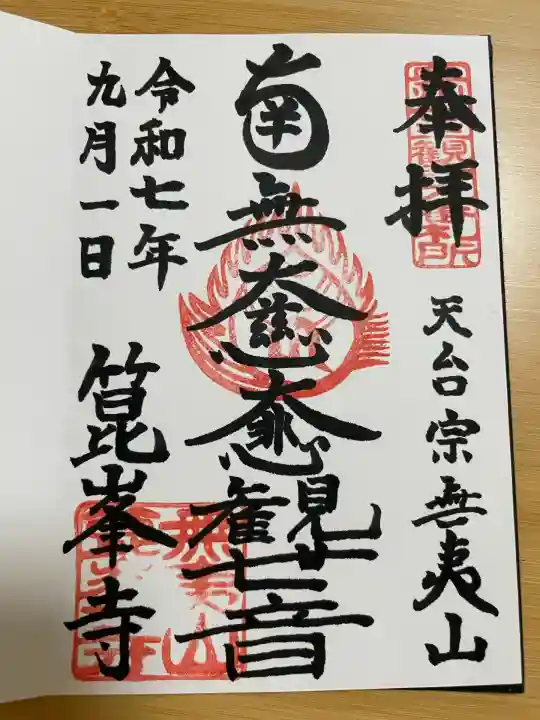 奉拝
天台宗無夷山
南無大慈大悲観世音
令和七年
九月一日
箟峯寺
無夷山